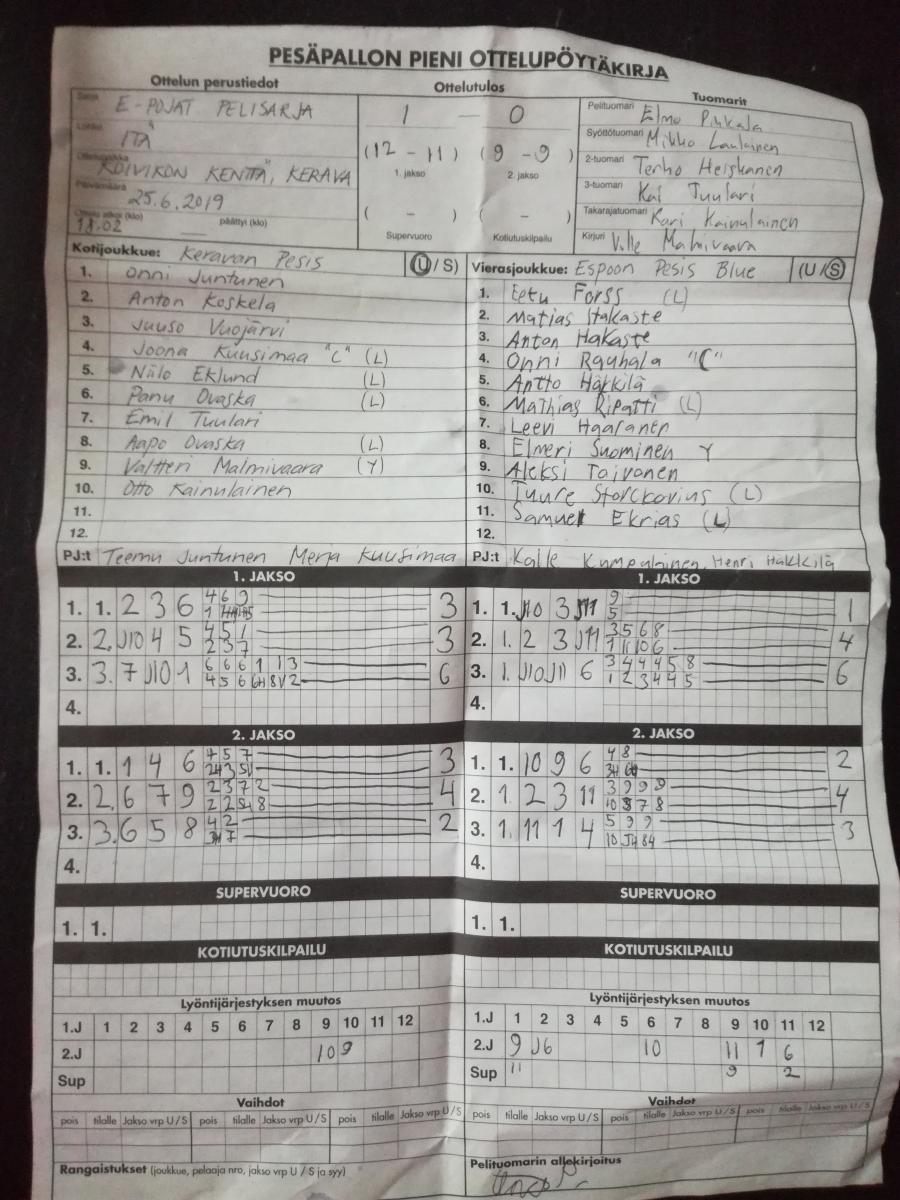 PESÄPALLON PIENI OTTELUPÖYTÄKIRJA
Ottelun perustiedot
Ottelutulos
Tuomarit
Sarja E-POJAT PELISARJA
Lohko ITÄ
Ottelupaikka KOIVIKON KENTTÄ, KERAVA
Päivämäärä 25.6.2019
Ottelu alkoi (klo) 18.02 päättyi (klo)
1 — 0
(12 - 11) (9 - 9)
1. jakso 2. jakso
( - ) ( - )
Supervuoro Kotiutuskilpailu
Pelituomari Elmo Pihkala
Syöttötuomari Mikko Laulainen
2-tuomari Terho Heiskanen
3-tuomari Kai Tuulari
Takarajatuomari Kari Kainulainen
Kirjuri Ville Malmivaara
Kotijoukkue: Keravan Pesis (U / S)
1. Onni Juntunen
2. Anton Koskela
3. Juuso Vuojärvi
4. Joona Kuusimaa "C" (L)
5. Niilo Eklund (L)
6. Panu Ovaska (L)
7. Emil Tuulari
8. Aapo Ovaska (L)
9. Valtteri Malmivaara (Y)
10. Otto Kainulainen
11.
12.
PJ:t Teemu Juntunen Merja Kuusimaa
Vierasjoukkue: Espoon Pesis Blue (U / S)
1. Eetu Forss (L)
2. Matias Hakaste
3. Anton Hakaste
4. Onni Rauhala "C"
5. Antto Häkkilä
6. Mathias Ripatti (L)
7. Leevi Haaranen
8. Elmeri Suominen Y
9. Aleksi Toivonen
10. Tuure Storckovius (L)
11. Samuel Ekrias (L)
12.
PJ:t Kalle Kumpulainen, Henri Häkkilä
1. JAKSO
1. 1. 2 3 6 4 6 9 3
2. 2. J10 4 5 4 5 1 2 3 7 3
3. 3. 7 J10 1 6 6 6 1 1 3 6
4.
1. JAKSO
1. 1. J10 3 J11 9 5 1
2. 1. 2 3 J11 3 5 6 8 1 11 10 6 4
3. 1. J10 J11 6 3 4 4 4 5 8 1 2 3 4 4 5 6
4.
2. JAKSO
1. 1. 1 4 6 4 5 7 3
2. 2. 6 7 9 2 3 7 2 4
3. 3. 6 5 8 4 2 2
4.
2. JAKSO
1. 1. 10 9 6 4 8 2
2. 1. 2 3 11 3 9 9 9 4
3. 1. 11 1 4 5 9 9 3
4.
SUPERVUORO
1. 1.
SUPERVUORO
1. 1.
KOTIUTUSKILPAILU
KOTIUTUSKILPAILU
Lyöntijärjestyksen muutos
1.J 1 2 3 4 5 6 7 8 9 10 11 12
2.J 10 9
Sup
Lyöntijärjestyksen muutos
1.J 1 2 3 4 5 6 7 8 9 10 11 12
2.J 9 J6 10 11 1 6
Sup 11 9 2
Vaihdot
pois tilalle Jakso vrp U / S pois tilalle Jakso vrp U / S pois tilalle Jakso vrp U / S
Vaihdot
pois tilalle Jakso vrp U / S pois tilalle Jakso vrp U / S pois tilalle Jakso vrp U / S
Rangaistukset (joukkue, pelaaja nro, jakso vrp U / S ja syy)
Pelituomarin allekirjoitus